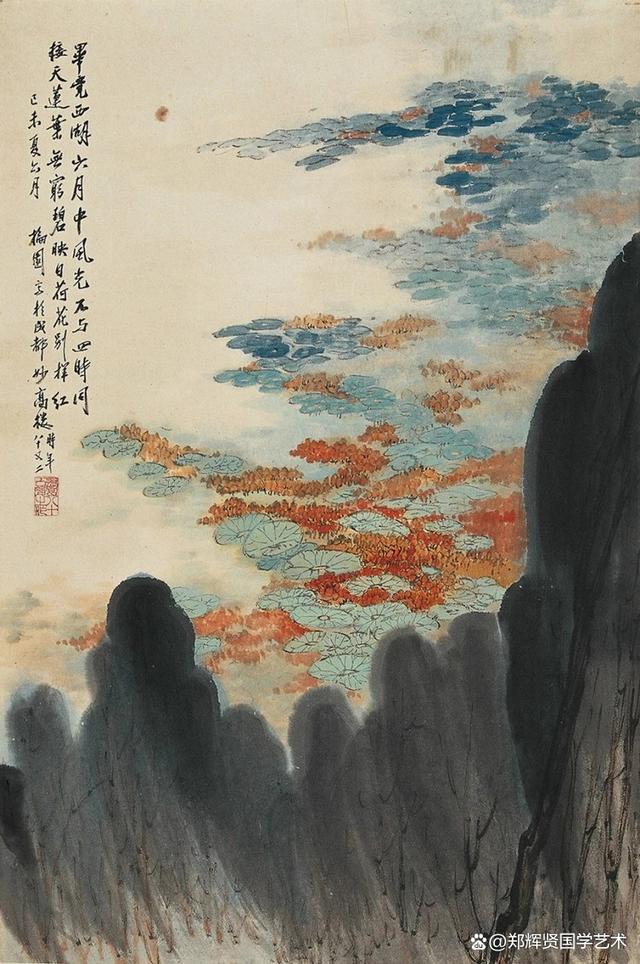 畢竟西湖六月中風光不与四時同
接天蓮葉無窮碧映日荷花别様红
己未夏六月 園写於成都妙高楼时年
八十又二
@郑辉贤国学艺术